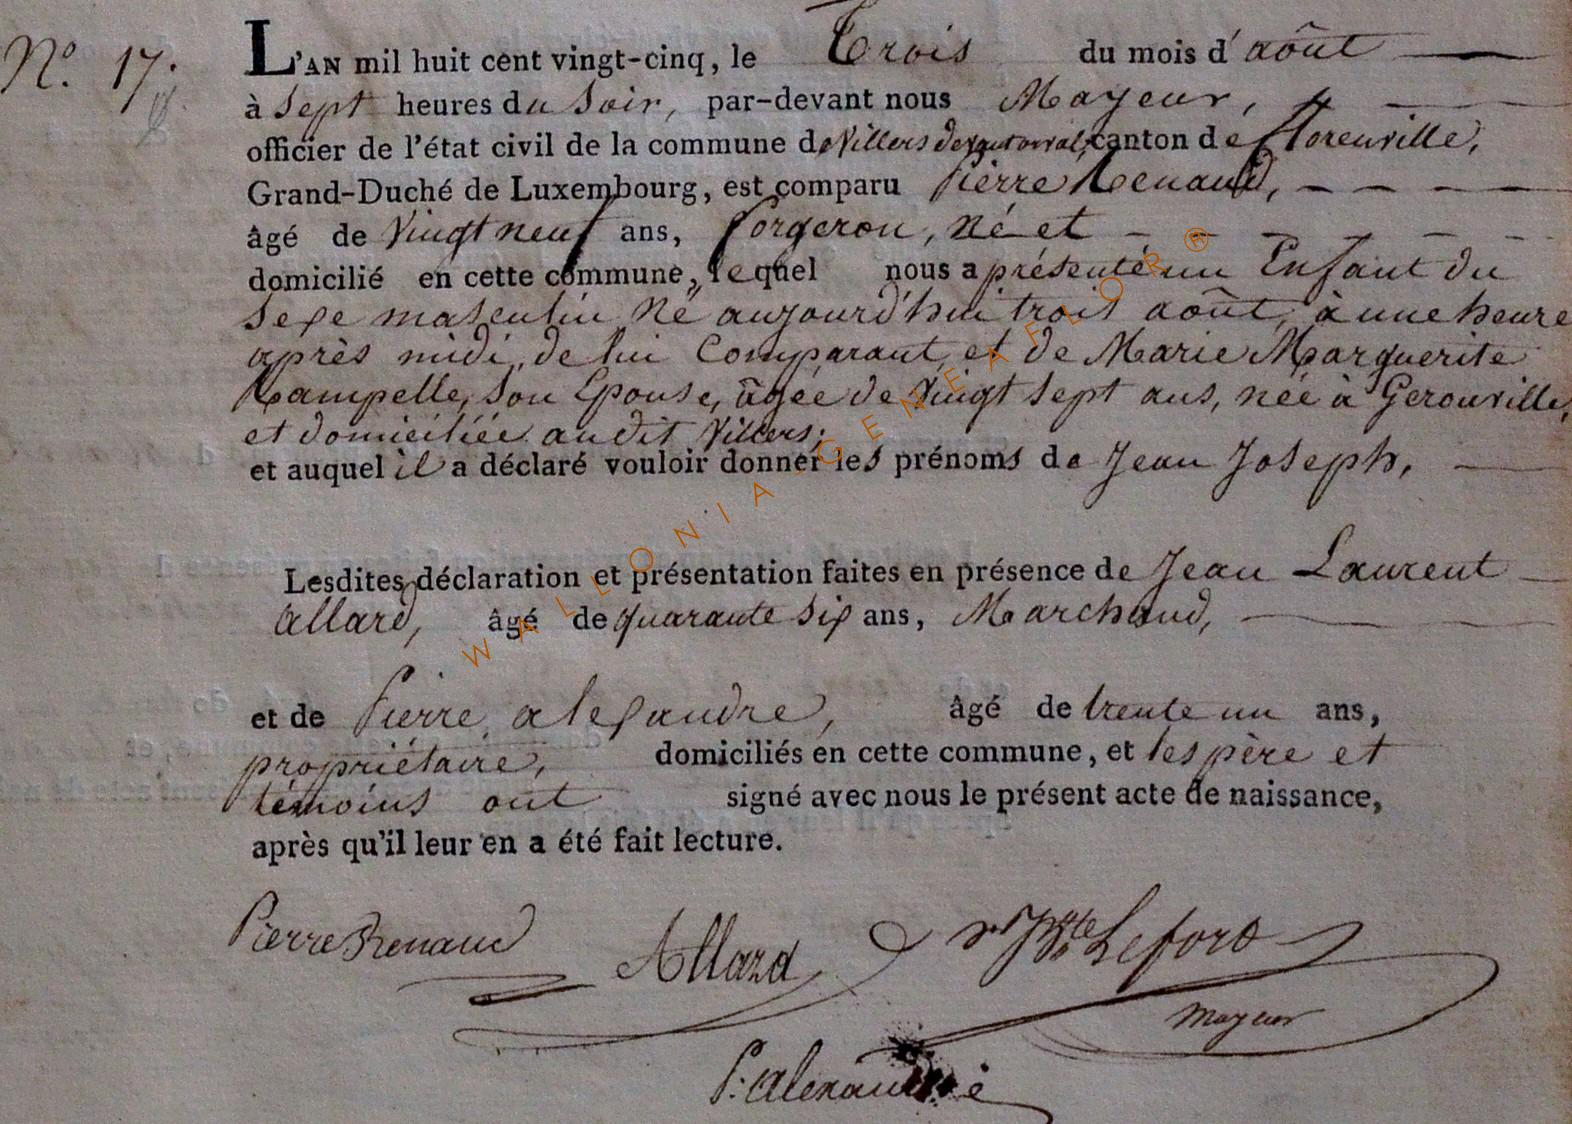 N.o 17.
L'AN mil huit cent vingt-cinq, le Trois du mois d'août
à sept heures du soir, par-devant nous Mayeur,
officier de l'état civil de la commune de Villers devant orval, canton de florenville,
Grand-Duché de Luxembourg, est comparu Pierre Renaud,
âgé de Vingt neuf ans, forgeron, né et
domicilié en cette commune, lequel nous a présenté un Enfant du
sexe masculin né aujourd'hui trois août, à une heure
après midi, de lui Comparant et de Marie Marguerite
Lampelle, son Epouse, âgée de Vingt sept ans, née à Gerouville,
et domiciliée audit Villers;
et auquel il a déclaré vouloir donner les prénoms de Jean Joseph,
Lesdites déclaration et présentation faites en présence de Jean Laurent
allard, âgé de quarante six ans, Marchand,
et de Pierre alexandre, âgé de trente un ans,
propriétaire, domiciliés en cette commune, et les père et
témoins ont signé avec nous le présent acte de naissance,
après qu'il leur en a été fait lecture.
Pierre Renaud Allard Jn Bte Lefort
Mayeur
P: alexandre
WALLONIA-GENEAFLOR®